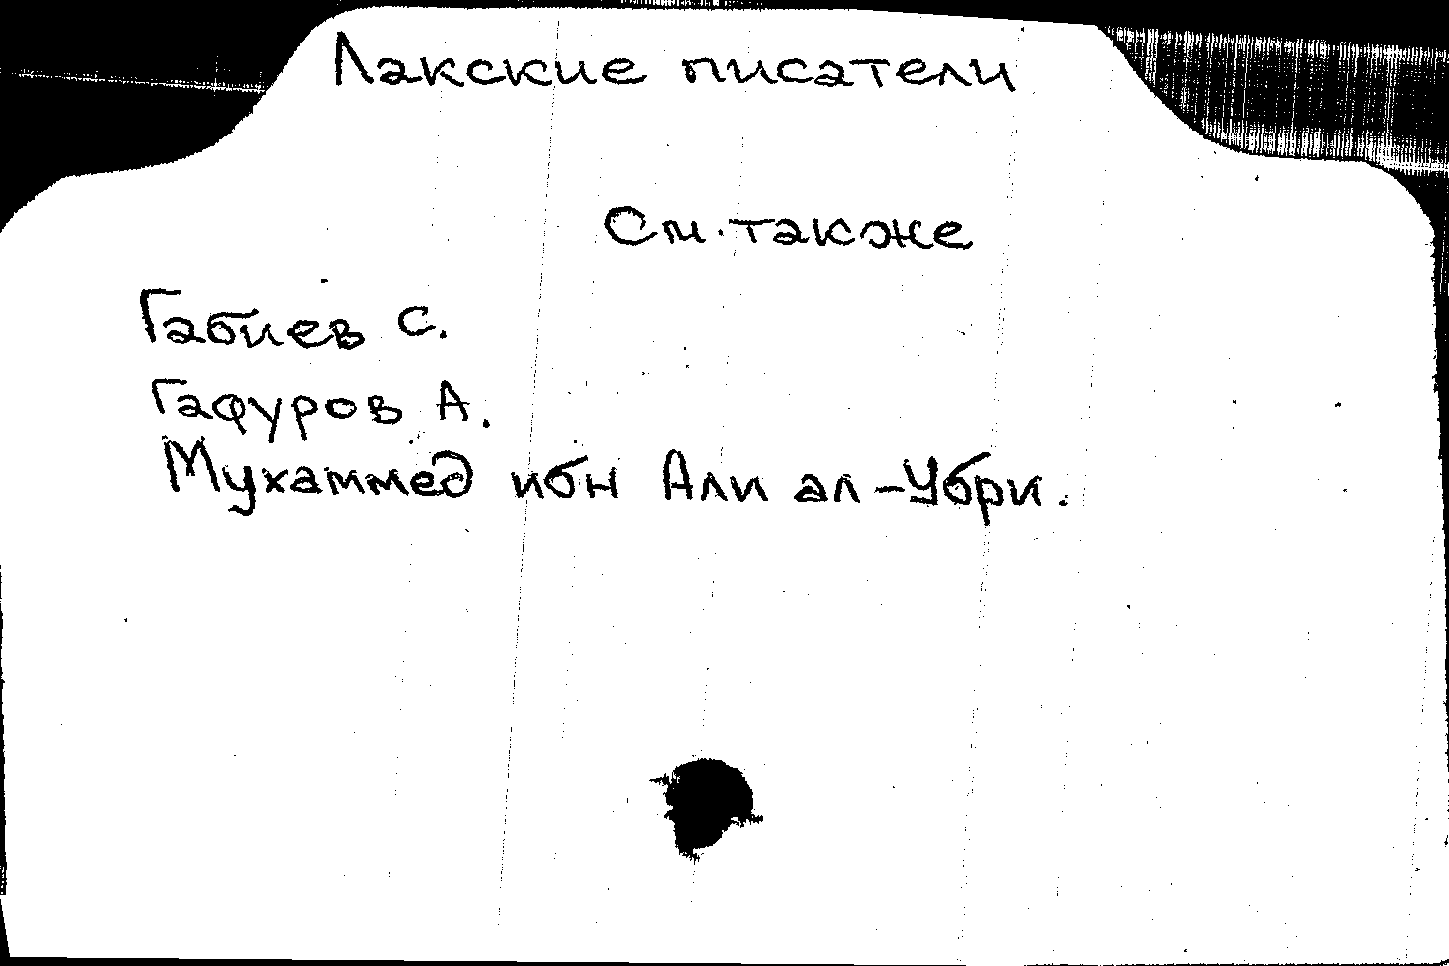 Лакские писатели
См. также
Габиев С.
Гафуров А.
Мухаммед ибн Али ал-Убри.